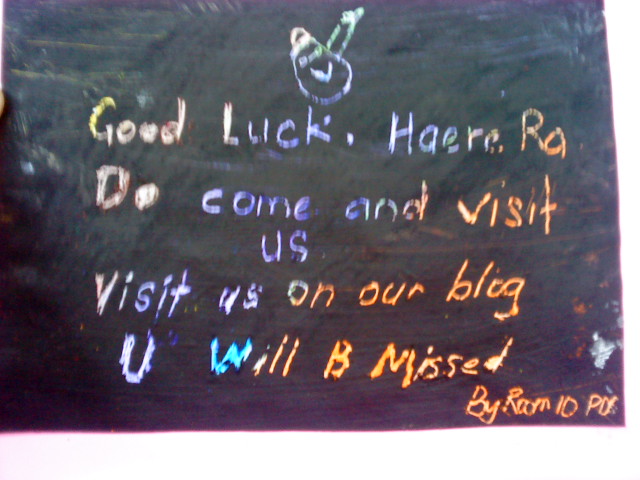 Good Luck. Haere Ra
Do come and visit
us
Visit us on our blog
U Will B Missed
By Room 10 PDS